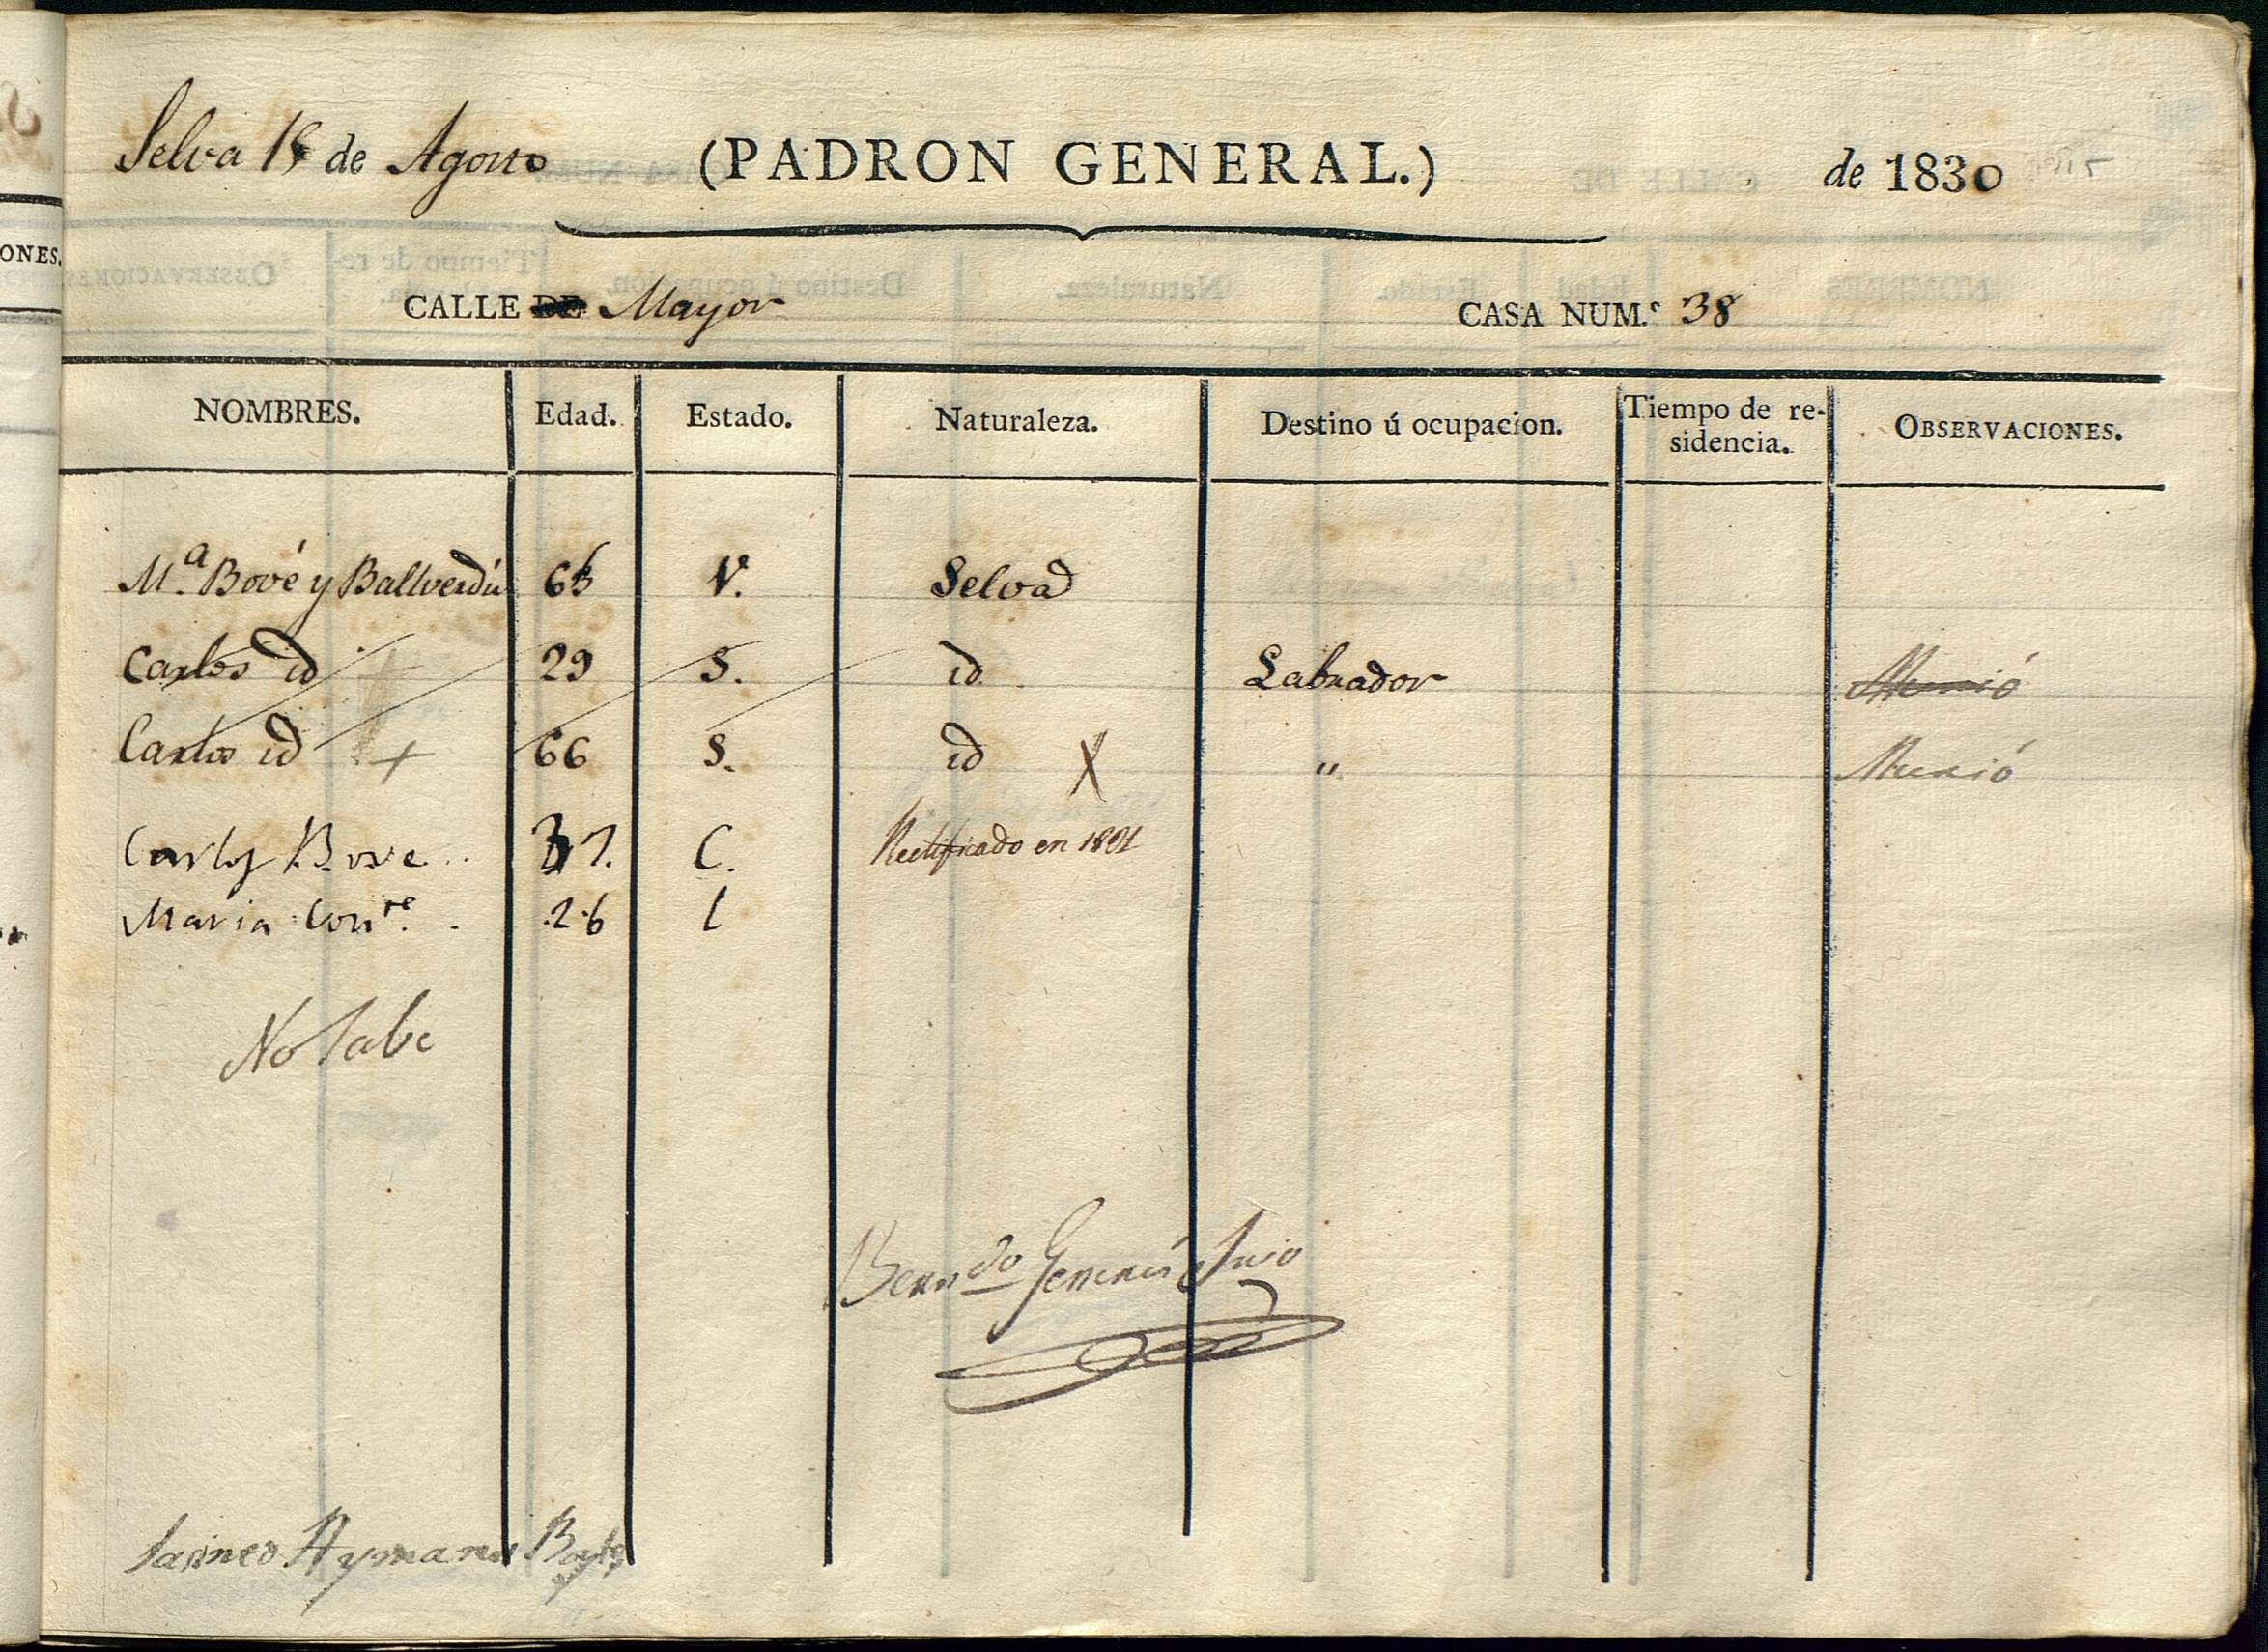 ONES.
Selva 15 de Agosto (PADRON GENERAL.) de 1830
CALLE DE Mayor CASA NUM.º 38
NOMBRES. Edad. Estado. Naturaleza. Destino ú ocupacion. Tiempo de re-sidencia. OBSERVACIONES.
M.ª Bové y Ballverdú 65 V. Selva
Carlos id 29 S. id Labrador Murió
Carlos id + 66 S. id X " Murió
Carlos Bove 37. C. Rectificado en 1831
Maria Con.te 26 C
No Sabe
Bern.do
Jaime Aymami Bayle